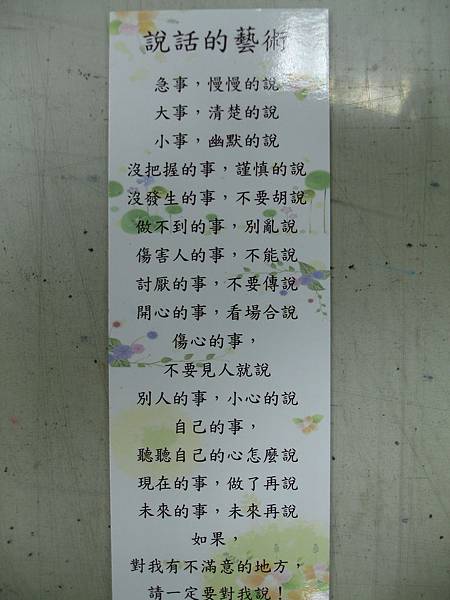 說話的藝術
急事，慢慢的說
大事，清楚的說
小事，幽默的說
沒把握的事，謹慎的說
沒發生的事，不要胡說
做不到的事，別亂說
傷害人的事，不能說
討厭的事，不要傳說
開心的事，看場合說
傷心的事，
不要見人就說
別人的事，小心的說
自己的事，
聽聽自己的心怎麼說
現在的事，做了再說
未來的事，未來再說
如果，
對我有不滿意的地方，
請一定要對我說！